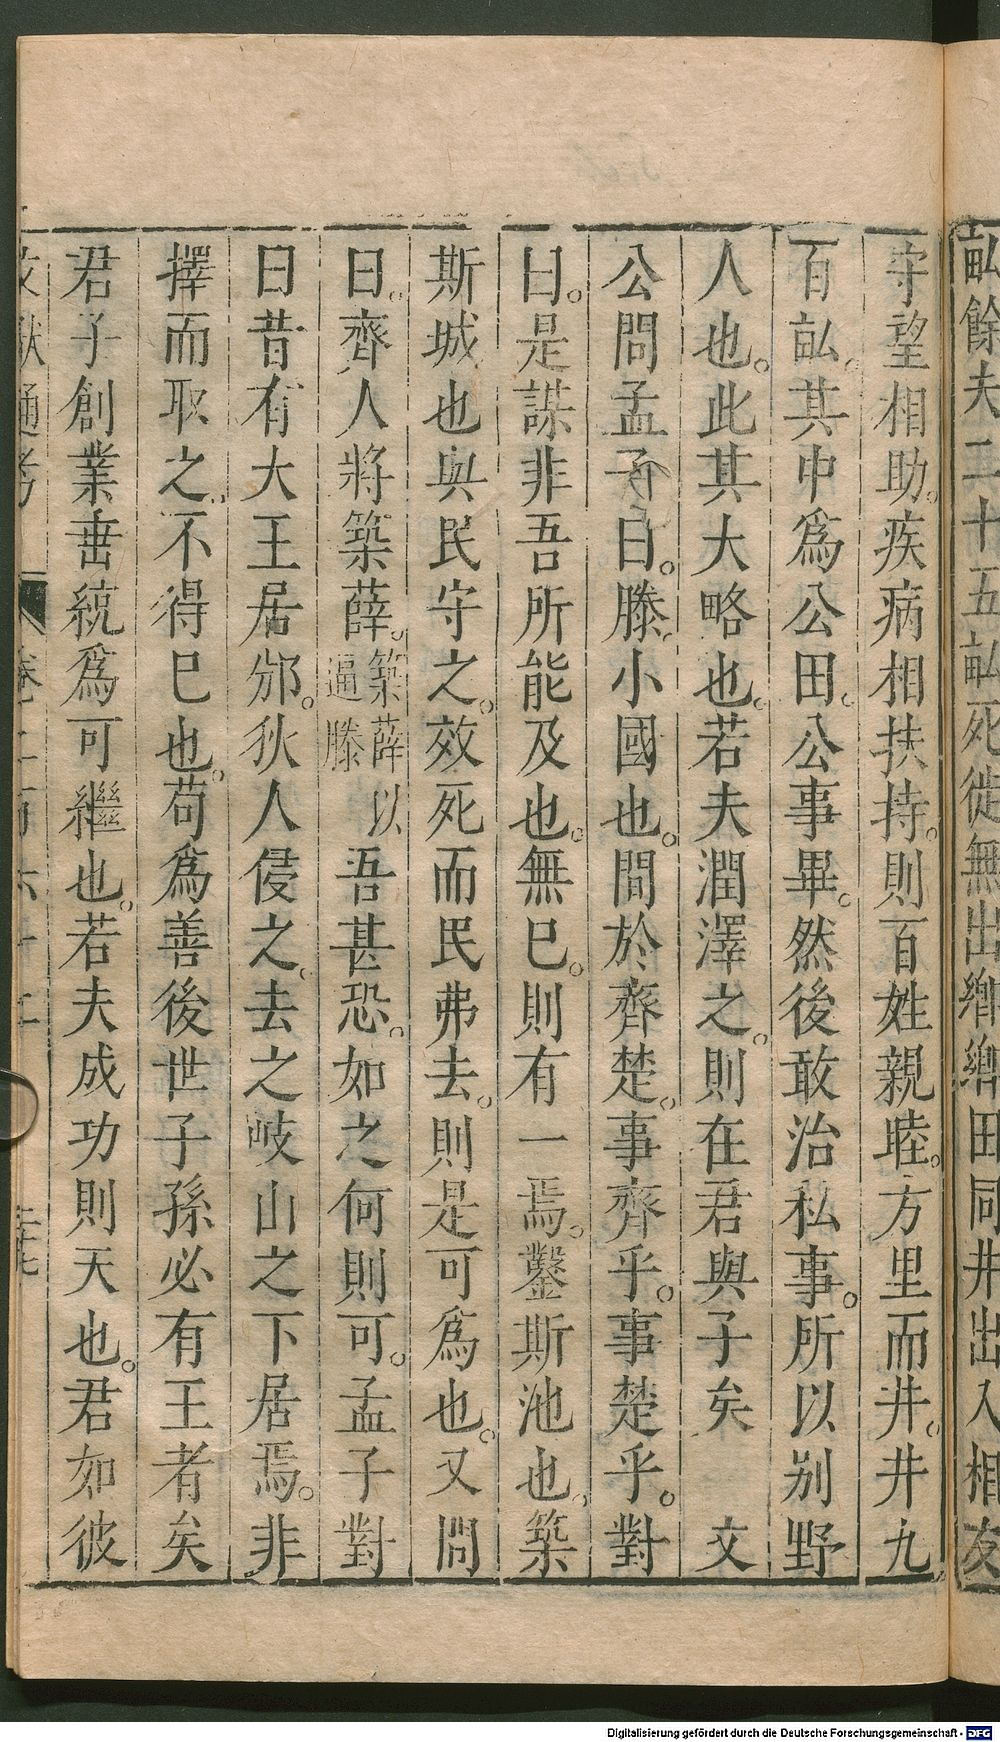 畝餘夫二十五畝死徙無出鄉鄉田同井出入相友
守望相助。疾病相扶持。則百姓親睦。方里而井。井九
百畝。其中爲公田。公事畢。然後敢治私事。所以别野
人也。此其大略也。若夫潤澤之。則在君與子矣　文
公問孟子曰。滕小國也。間於齊楚。事齊乎。事楚乎。對
曰。是謀非吾所能及也。無已。則有一焉。鑿斯池也。築
斯城也與民守之。效死而民弗去。則是可爲也。又問
曰。齊人將築薛。築薛以逼滕吾甚恐。如之何則可。孟子對
曰昔有大王居邠。狄人侵之。去之岐山之下居焉。非
擇而取之。不得已也。苟爲善後世子孫必有王者矣
君子創業垂統爲可繼也。若夫成功則天也。君如彼
文獻通考　卷二百六十二